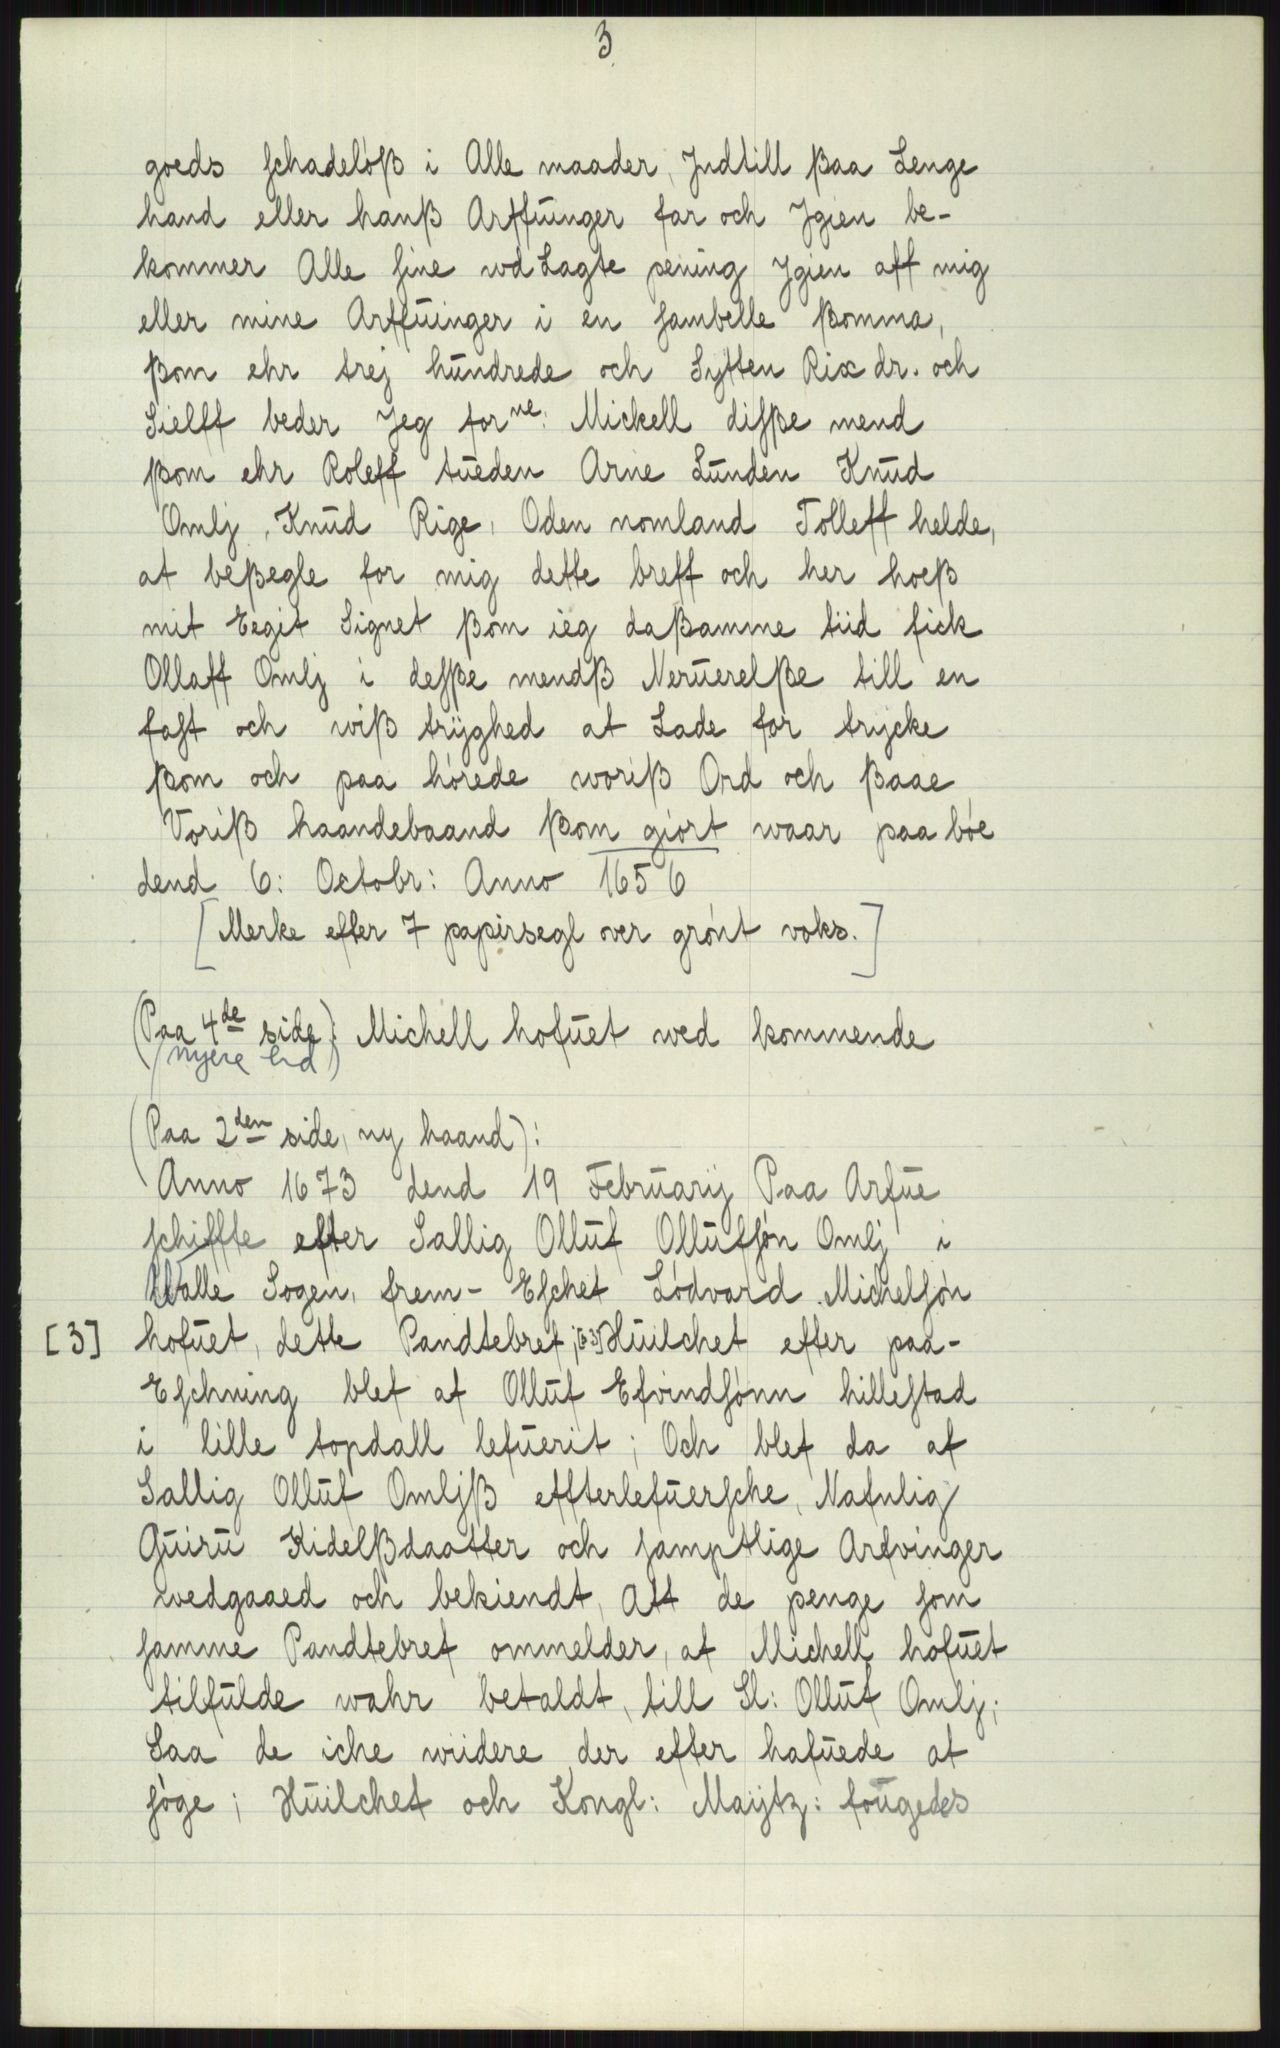 3
goeds schadelóß i Alle maader, Jndtill ßaa Lenge
hand eller hanß Arffuinger far och Jgien be-
kommer Alle sine wd Lagte pening Jgien aff mig
eller mine Arffuinger i en sambelle ßomma,
ßom ehr trej hundrede och Sytten Rix dr. och
Sielff beder Jeg forne: Mickell disße mend
ßom ehr Roleff tueden Arne Lunden Knud
Omlj, Knud Rige, Oden nomland Tolleff helde,
at beßegle for mig dette breff och her hoeß
mit Eegit Signet ßom ieg daßamme tiid fick
Ollaff Omlj i desße mendß Neruerelße till en
fast och wiß trÿghed at Lade for trycke
ßom och paa hórede woriß Ord och ßaae
Voriß haandebaand ßom giort waar paa bóe
dend 6: Octobr: Anno 1656
[Merke efter 7 papirsegl over grónt voks.]
(Paa 4de side): Michell hofuet wed kommende
(nyere hd)
(Paa 2den side, ny haand):
Anno 1673 dend 19 Februarij Paa Arfue
schiffte efter Sallig Olluf Ollufsón Omlj i
Walle Sogen, frem-Eschet Lódvard Michelsón
[3] hofuet, dette Pandtebref, [3] Huilchet efter paa-
Eschning blef af Olluf Efvindsónn hillestad
i lille topdall lefuerit; Och blef da af
Sallig Olluf Omljß effterlefuersche, Nafnlig
Guiru Kidelßdaatter och samptlige Arfvinger
wedgaaed och bekiendt, Att de penge som
samme Pandtebref ommelder, af Michell hofuet
tilfulde wahr betaldt, till Sl: Olluf Omlj;
Saa de iche wiidere der efter hafuede at
sóge; Huilchet och Kongl: Maijtz: fougedes